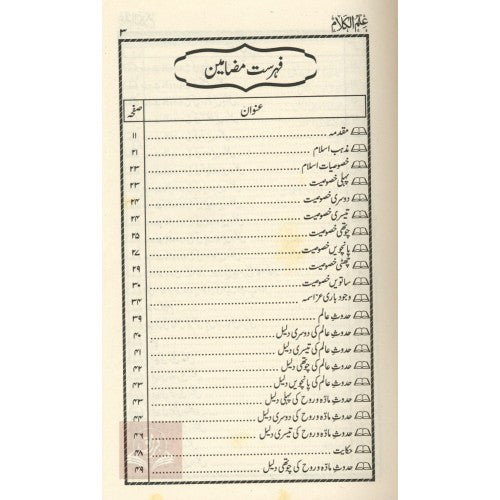 علم الکلام ۳
فہرست مضامین
عنوان صفحہ
مقدمہ ۱۱
مذہب اسلام ۲۱
خصوصیات اسلام ۲۳
پہلی خصوصیت ۲۳
دوسری خصوصیت ۲۴
تیسری خصوصیت ۲۴
چوتھی خصوصیت ۲۵
پانچویں خصوصیت ۲۷
چھٹی خصوصیت ۲۹
ساتویں خصوصیت ۳۰
وجود باری عزاسمہ ۳۴
حدوثِ عالم ۳۹
حدوثِ عالم کی دوسری دلیل ۴۰
حدوثِ عالم کی تیسری دلیل ۴۱
حدوثِ عالم کی چوتھی دلیل ۴۲
حدوثِ عالم کی پانچویں دلیل ۴۳
حدوثِ مادّہ و روح کی پہلی دلیل ۴۳
حدوثِ مادّہ و روح کی دوسری دلیل ۴۴
حدوثِ مادّہ و روح کی تیسری دلیل ۴۶
حکایت ۴۸
حدوثِ مادّہ و روح کی چوتھی دلیل ۴۹